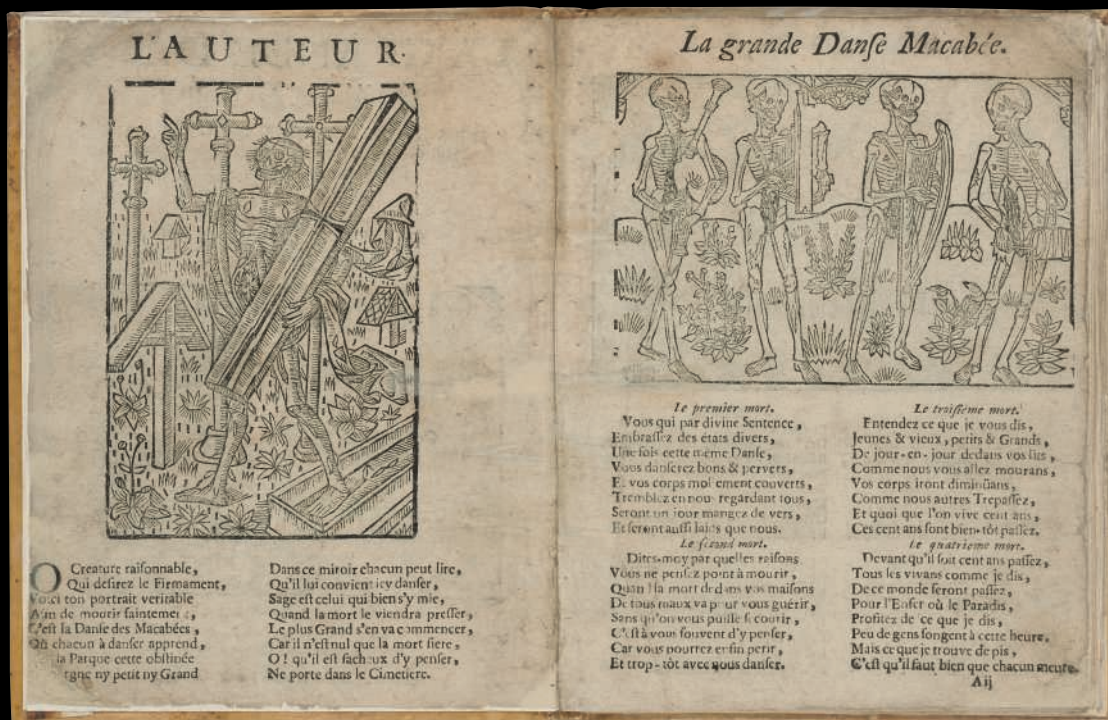 L'AUTEUR.
O Creature raisonnable,
Qui desirez le Firmament,
Voici ton portrait veritable
Afin de mourir saintement,
C'est la Danse des Macabées,
Où chacun à danser apprend,
la Parque cette obstinée
ny petit ny Grand
Dans ce miroir chacun peut lire,
Qu'il lui convient icy danser,
Sage est celui qui bien s'y mie,
Quand la mort le viendra presser,
Le plus Grand s'en va commencer,
Car il n'est nul que la mort fiere,
O ! qu'il est facheux d'y penser,
Ne porte dans le Cimetiere.
La grande Danse Macabée.
Le premier mort.
Vous qui par divine Sentence,
Embrassez des états divers,
Une fois cette même Danse,
Vous danserez bons & pervers,
Et vos corps mollement couverts,
Tremblez en nous regardant tous,
Seront un jour mangez de vers,
Et seront aussi laids que nous.
Le second mort.
Dites-moy par quelles raisons
Vous ne pensez point à mourir,
Quand la mort dedans vos maisons
De tous maux va pour vous guérir,
Sans qu'on vous puisse secourir,
C'est à vous souvent d'y penser,
Car vous pourrez enfin perir,
Et trop-tôt avec nous danser.
Le troisiéme mort.
Entendez ce que je vous dis,
Jeunes & vieux, petits & Grands,
De jour-en-jour dedans vos lits,
Comme nous vous allez mourans,
Vos corps iront diminüans,
Comme nous autres Trepassez,
Et quoi que l'on vive cent ans,
Ces cent ans sont bien-tôt passez.
Le quatrieme mort.
Devant qu'il soit cent ans passez,
Tous les vivans comme je dis,
De ce monde seront passez,
Pour l'Enfer où le Paradis,
Profitez de ce que je dis,
Peu de gens songent à cette heure,
Mais ce que je trouve de pis,
C'est qu'il faut bien que chacun meure.
A ij